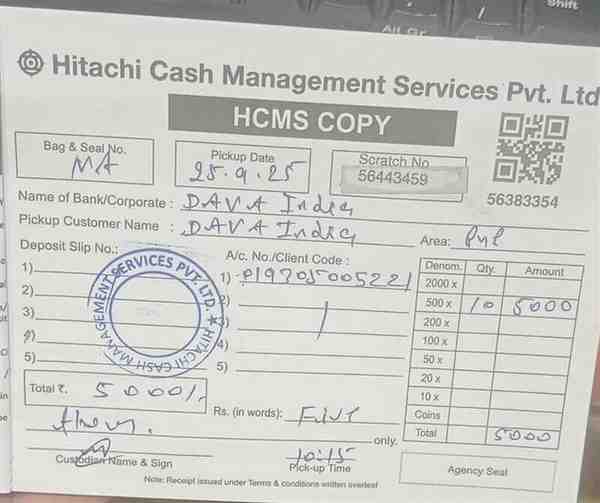 Shift
Alt Gr
Hitachi Cash Management Services Pvt. Ltd
HCMS COPY
Bag & Seal No.
NA
Pickup Date
25.9.25
Scratch No
56443459
56383354
Name of Bank/Corporate : DAVA India
Pickup Customer Name : DAVA India
Area:
Deposit Slip No.:
A/c. No./Client Code :
1)
1)
2)
2)
3)
3)
4)
4)
5)
5)
HITACHI CASH MANAGEMENT SERVICES PVT. LTD. ★
Denom. Qty. Amount
2000 x
500 x 10 5000
200 x
100 x
50 x
20 x
10 x
Coins
Total 5000
Total ₹.
Rs. (in words):
only.
Custodian Name & Sign
10:15
Pick-up Time
Agency Seal
Note: Receipt issued under Terms & conditions written overleaf